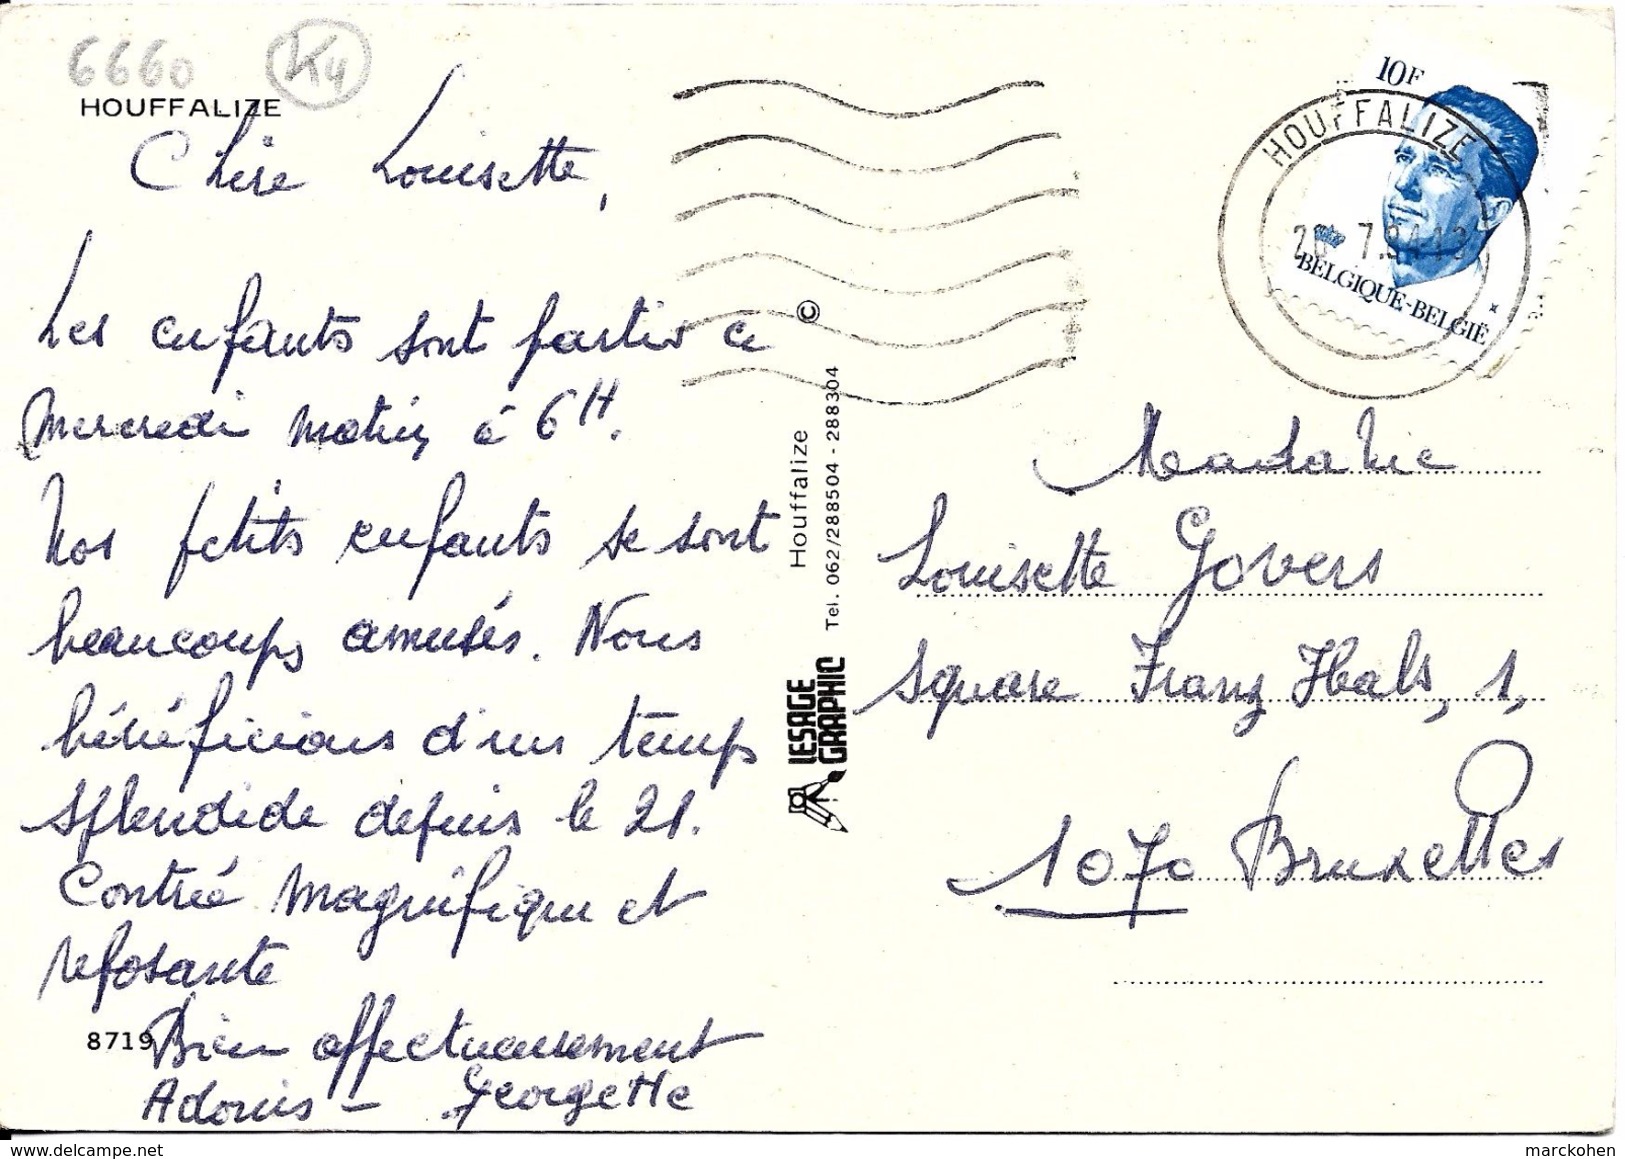 6660 K4
HOUFFALIZE
Chère Louisette,
Les enfants sont partir ce
mercredi matin à 6H.
Nos petits enfants se sont
beaucoups amusés. Nous
bénéficions d'un temps
splendide depuis le 21.
Contrée magnifique et
reposante
8719
Bien affectueusement
Adonis - Georgette
©
Houffalize
Tel. 062/288504 - 288304
LESAGE
GRAPHIC
10F
BELGIQUE-BELGIË
HOUFFALIZE
Madame
Louisette Govers
square Franz Hals, 1,
1070 Bruxelles
marckohen